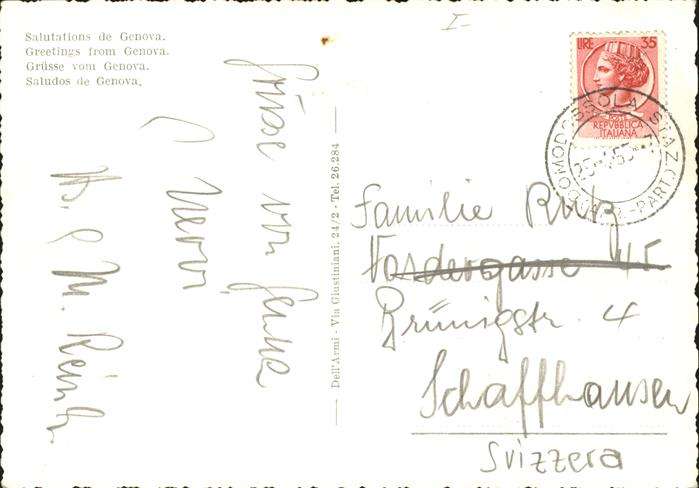 Salutations de Genova.
Greetings from Genova.
Grüsse vom Genova.
Saludos de Genova.
Grüsse von
Nervi
Dell'Armi - Via Giustiniani, 24/2 - Tel. 26.284
I-
LIRE 35
REPVBBLICA
ITALIANA
DOMODOSSOLA STAZ.
Familie
Vordergasse 45
Brünigstr. 4
Schaffhausen
Svizzera